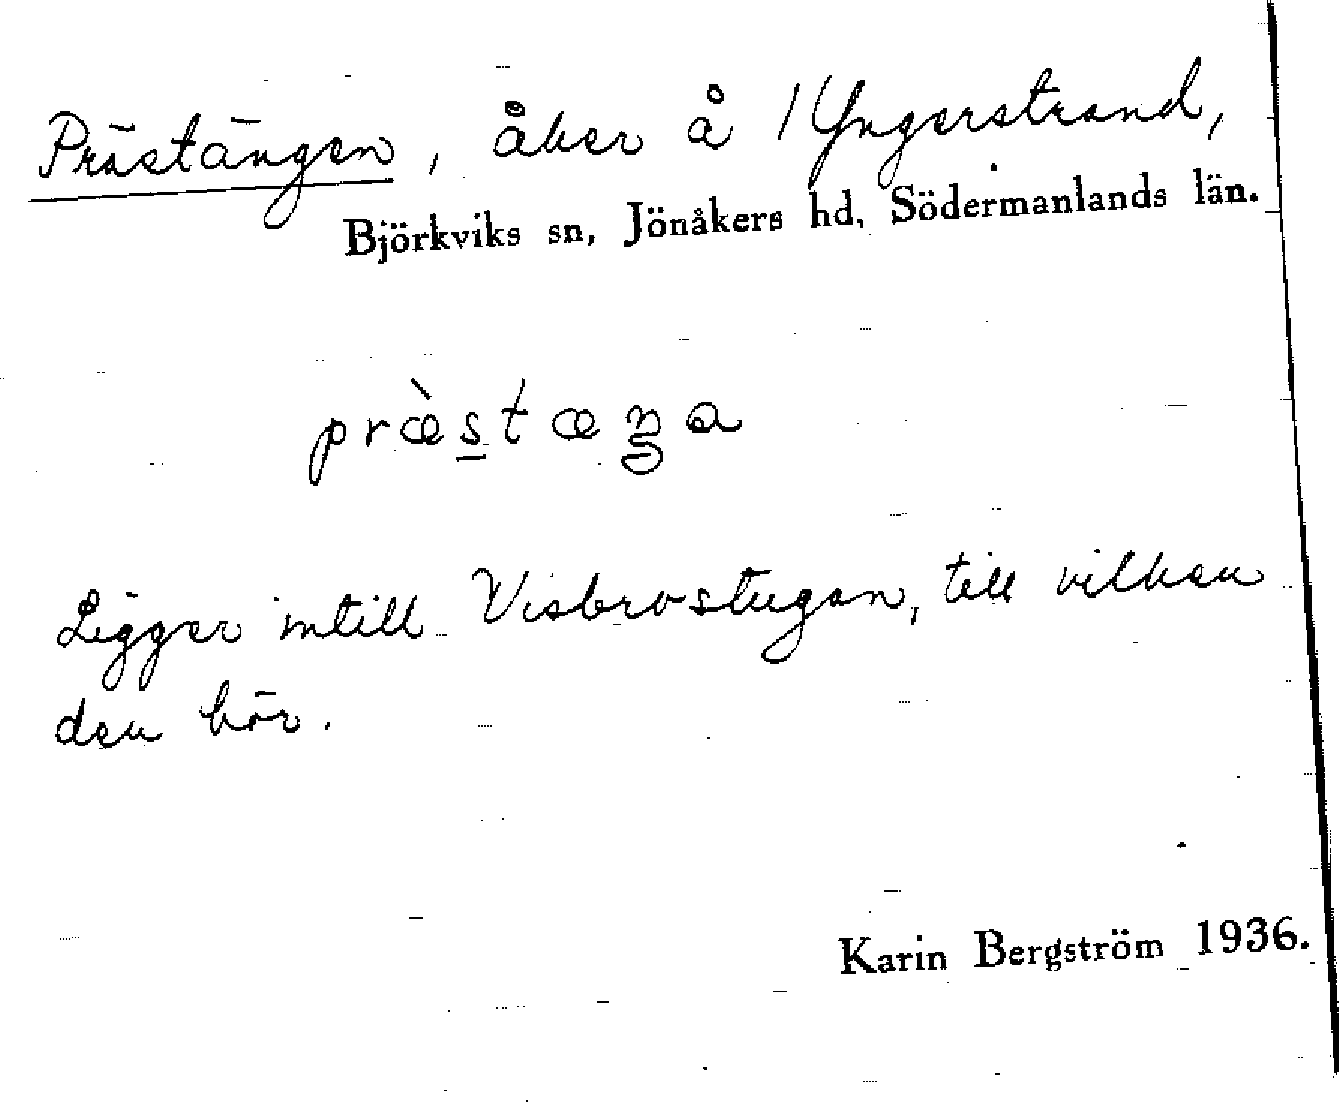 Prästängen, åker å 1 Yngerstrand,
Björkviks sn, Jönåkers hd, Södermanlands län.
præ̀s̲tæŋa
Ligger intill Visbrostugan, till vilken
den hör.
Karin Bergström 1936.